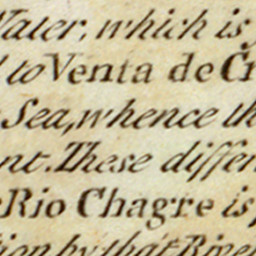 Water, which is
to Venta de Cr
Sea, whence th
nt. These differ
Rio Chagre is
tion by that River